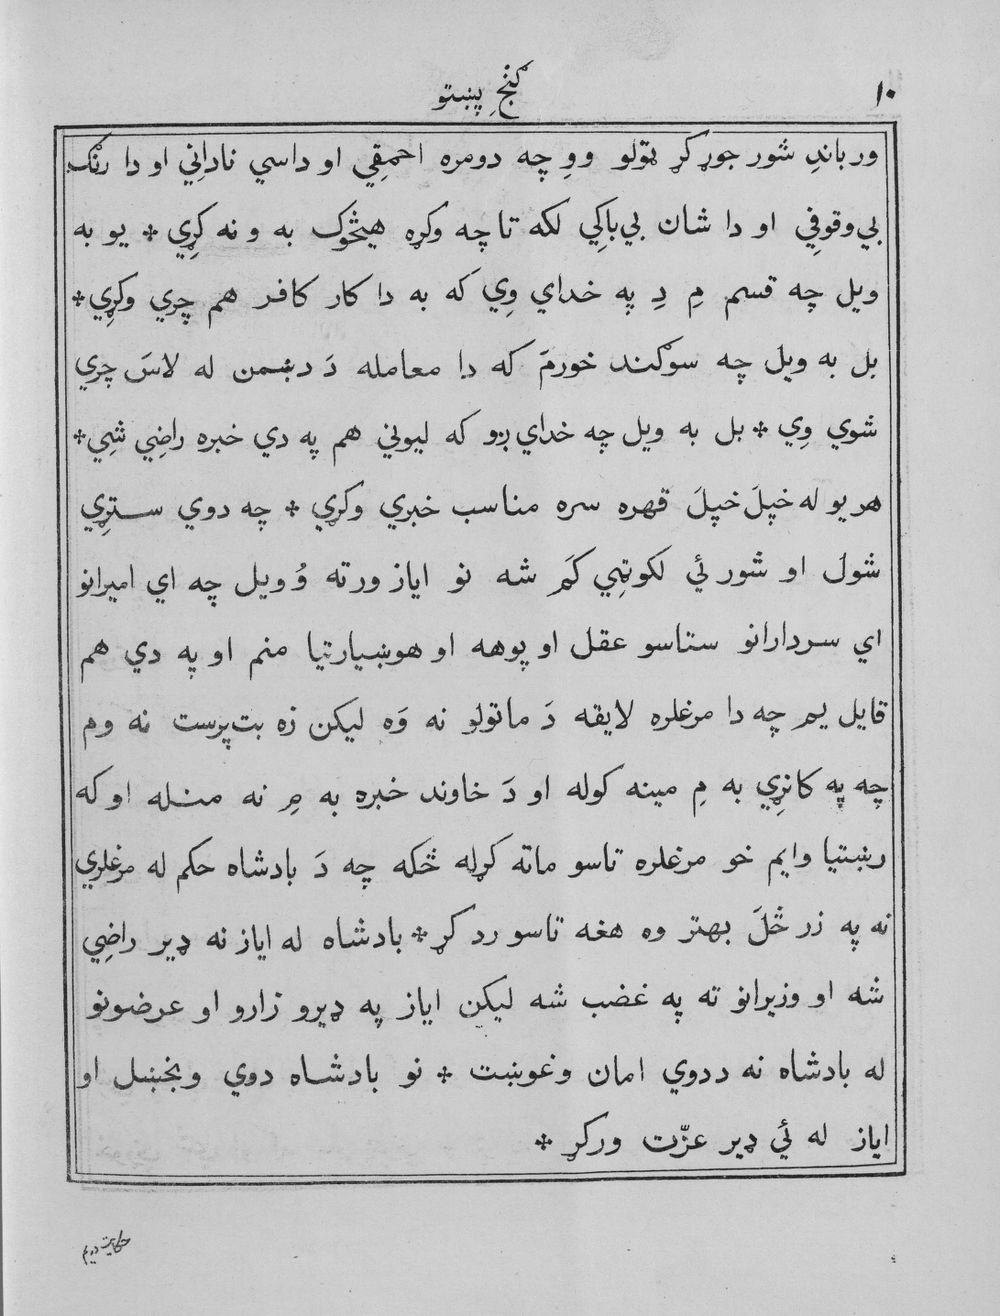 ١٠
ګنجِ پښتو
ور باندِ شور جوړ کړِ ټولو ووِ چه دومره احمقِي او داسي نادانِي او دا رنګ
بي‌وقوفِي او دا شان بي‌باکِي لکه تا چه وکړه هیڅوک به و نه کړِي * یو به
ویل چه قسم مِ دِ په خداي وِي که به دا کار کافر هم چري وکړِي *
بل به ویل چه سوګند خورمَ که دا معامله دَ دښمن له لاسَ چري
شوي وِي * بل به ویل چه خداي ږو که لیوني هم په دي خبره راضِي شِي *
هر یو له خپلَ خپلَ قهره سره مناسب خبري وکړِي * چه دوي ستړِي
شولُ او شور ئي لکوټِي کَم شه نو ایاز ورته وُ ویل چه اي امیرانو
اي سردارانو ستاسو عقل او پوهه او هوښیارتیا منم او په دي هم
قایل یم چه دا مرغلره لایقه دَ ماتولو نه وَه لیکن زه بت‌پرست نه وم
چه په کانړِي به مِ مینه کوله او دَ خاوند خبره به مِ نه منله او که
رښتیا وایم خو مرغلره تاسو ماته کړله ځکه چه دَ بادشاه حکم له مرغلري
نه په زر ځلَ بهتر وه هغه تاسو رد کړ * بادشاه له ایاز نه ډیر راضِي
شه او وزیرانو ته په غضب شه لیکن ایاز په ډیرو زارو او عرضونو
له بادشاه نه ددوي امان وغوښت * نو بادشاه دوي وبخښل او
ایاز له ئي ډیر عزّت ورکړ *
حکایت دویم